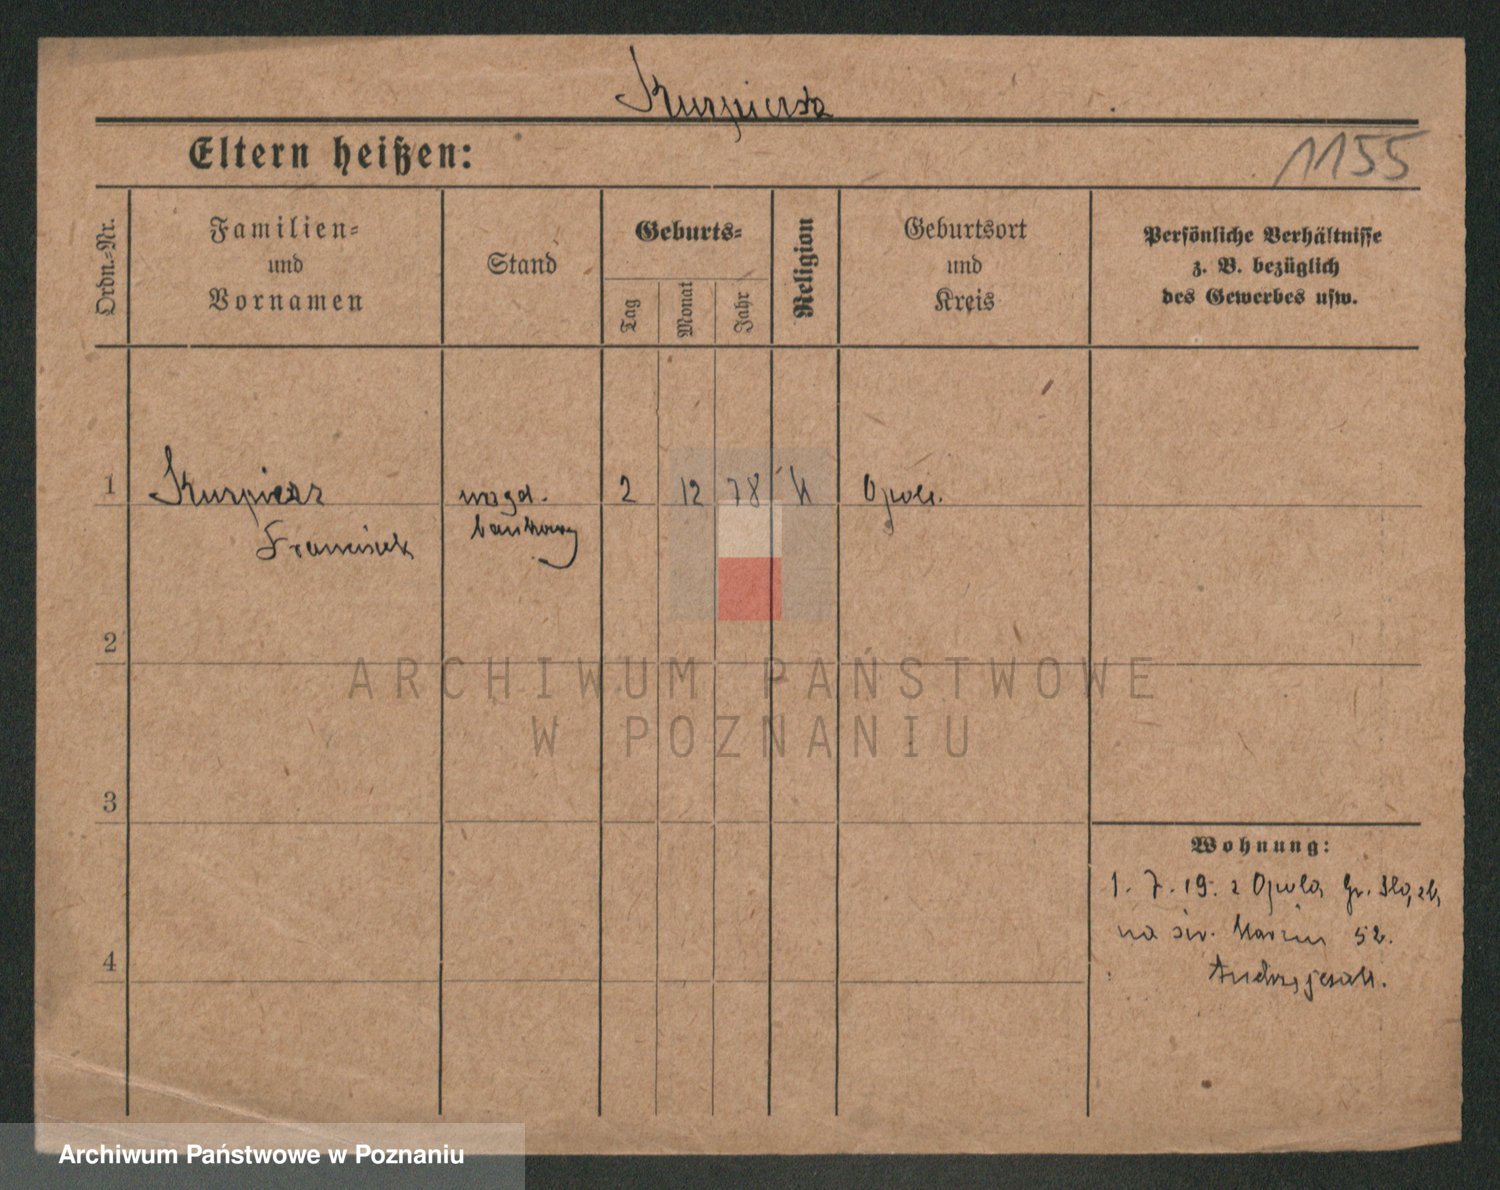 Kurpierz
Eltern heißen:
1155
Ordn.-Nr.
Familien-
und
Vornamen
Stand
Geburts-
Tag
Monat
Jahr
Religion
Geburtsort
und
Kreis
Persönliche Verhältnisse
z. B. bezüglich
des Gewerbes usw.
1
Kurpierz
Franciszek
urzęd.
bankowy
2
12
78
K
Opole.
2
ARCHIWUM PAŃSTWOWE
W POZNANIU
3
Wohnung:
1. 7. 19. z Opola Gr.
na św. Marcin 52.
4
Andrzejczak.
Archiwum Państwowe w Poznaniu